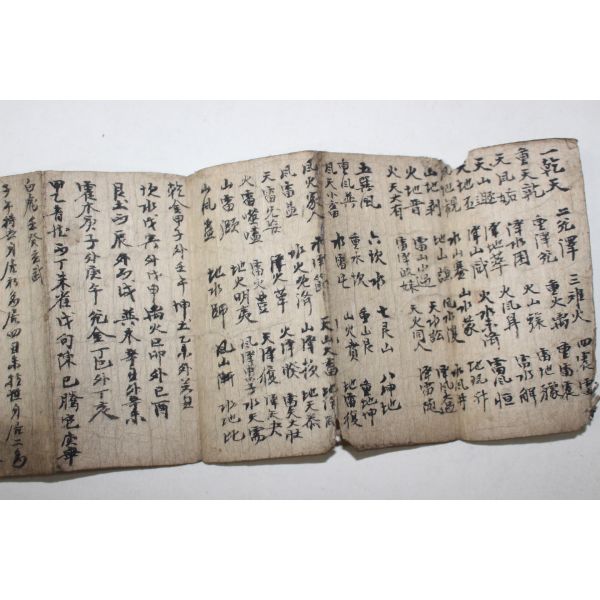 一乾天 二兌澤 三離火 四震雷
重天乾 重澤兌 重火离 重雷震
天風姤 澤水困 火山旅 雷地豫
天山遯 澤地萃 火風鼎 雷水解
天地否 澤山咸 火水未濟 雷風恒
風地觀 水山蹇 山水蒙 地風升
山地剝 地山謙 風水渙 水風井
火地晋 雷山小過 天水訟 澤風大過
火天大有 雷澤歸妹 天火同人 澤雷隨
五巽風 六坎水 七艮山 八坤地
重風巽 重水坎 重山艮 重地坤
風天小畜 水澤節 山火賁 地雷復
風火家人 水雷屯 山天大畜 地澤臨
風雷益 水火旣濟 山澤損 地天泰
天雷无妄 澤火革 火澤睽 雷天大壯
火雷噬嗑 雷火豊 天澤履 澤天夬
山雷頤 地火明夷 風澤中孚 水天需
山風蠱 地水師 風山漸 水地比
乾金甲子外壬午 坤土乙未外癸丑
坎水戊寅外戊申 离火己卯外己酉
艮土丙辰外丙戌 巽木辛丑外辛未
震木庚子外庚午 兌金丁巳外丁亥
甲乙靑龍 丙丁朱雀 戊句陳 己螣蛇 庚辛
白虎 壬癸玄武